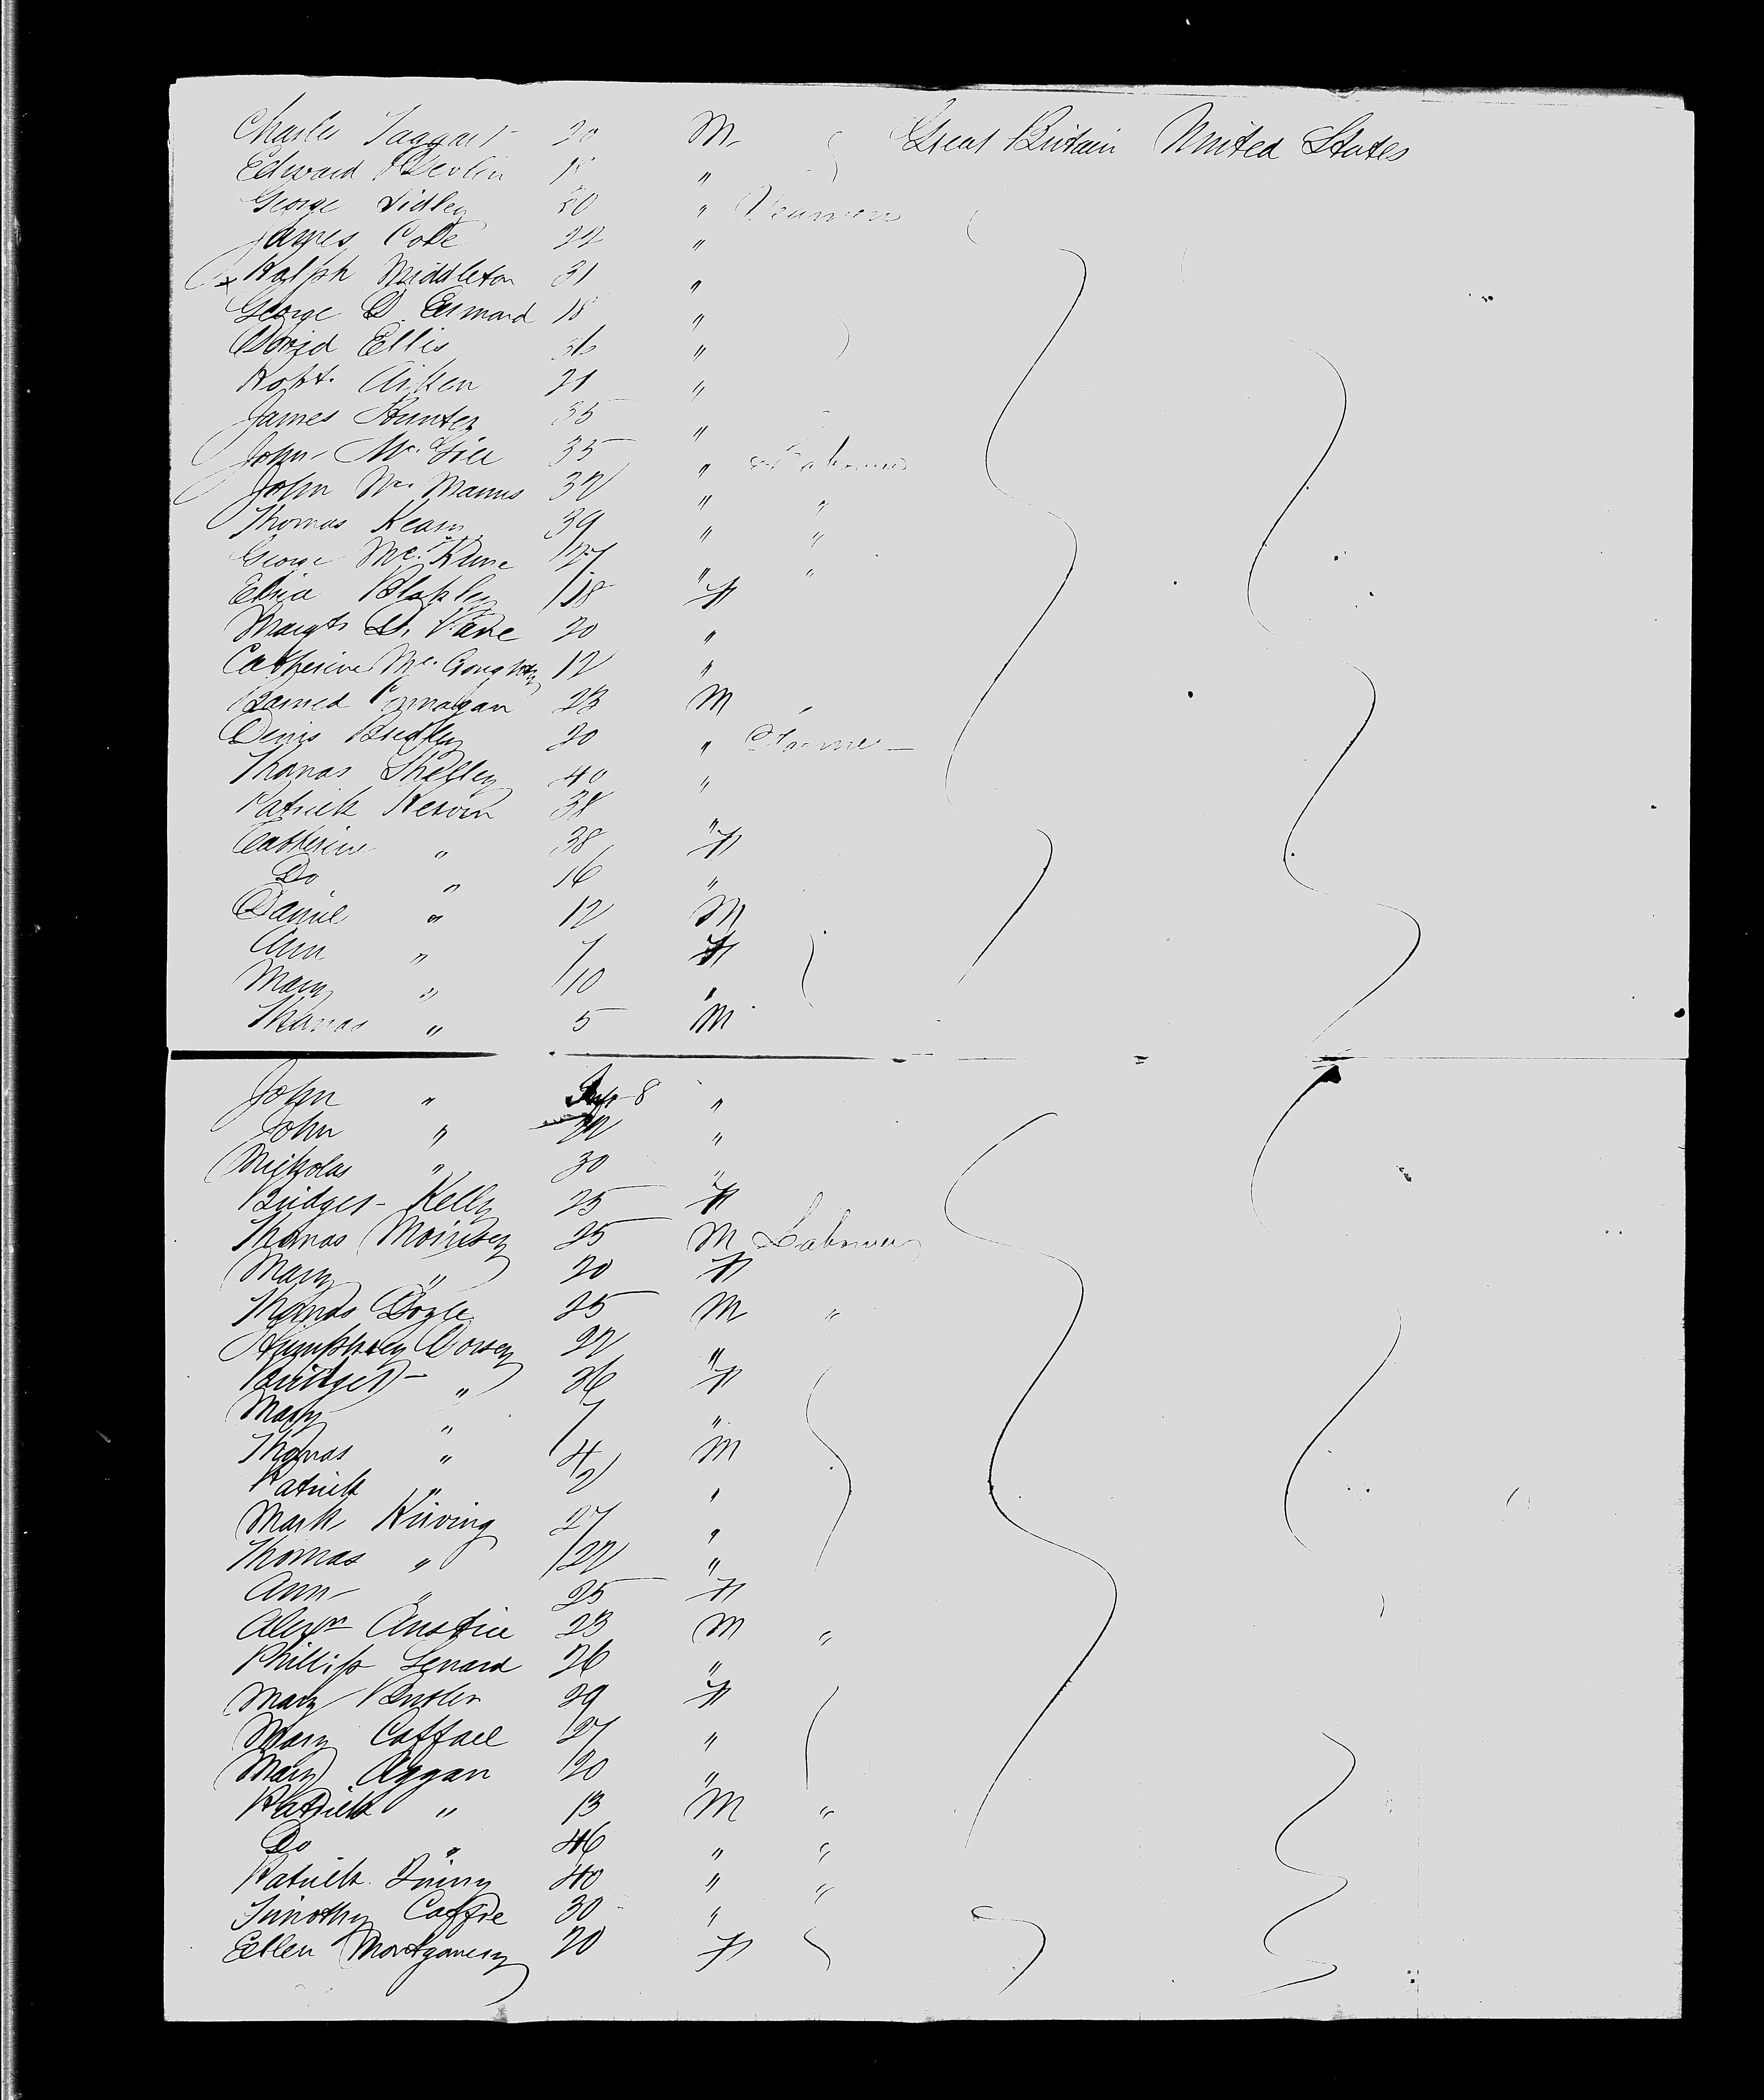 Charles Taggart 20 M Great Britain United States
Edward Devlin 18 "
George Sidley 20 "
James Cole 22 "
Ralph Middleton 31 "
George D. 18 "
David Ellis 36 "
Robt. Aiken 21 "
James Hunter 35 "
John Mc. Gill 35 " Labourer
John Mc. Manus 32 " "
Thomas Kean 39 " "
George Mc. Kune 27 " "
Eliza Blakley 18 F
Margt. D. 20 "
Catherine Mc. 12 "
Finnagan 23 M
Denis 20 " Farmer
Thomas Shelley 40 "
Patrick Kervin 38 "
Catherine " 38 F
Do " 16 "
Daniel " 12 M
Ann " 7 F
Mary " 10 "
Thomas " 5 M
John " 8 "
John " 22 "
Nicholas " 30 "
Bridget Kelly 25 F
Thomas 25 M Labourer
Mary " 20 F
Thomas Doyle 25 M "
Humphrey Dorsey 22 "
Bridget " 26 F
Mary " 7 "
Thomas " 4 M
Patrick " 2 "
Mark Kirving 27 "
Thomas " 22 "
Ann " 25 F
Alexr. 23 M "
Phillip Lenard 26 "
Mary Butler 29 F
Mary 27 "
Mary Aggan 20 "
Patrick " 13 M "
Do " 46 " "
Patrick 40 " "
Timothy 30 "
Ellen Montgomery 20 F